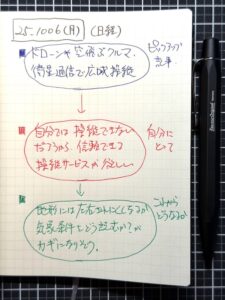 25-1006(月) (日経)
ドローンや空飛ぶクルマ、
衛星通信で広域操縦
ピックアップ
記事
自分では操縦できない
だろうから、信頼できる
操縦サービスが欲しい
自分に
とって
地形には左右されにくくなるが
気象条件をどう読むか?が
カギになりそう。
これから
どうなるか